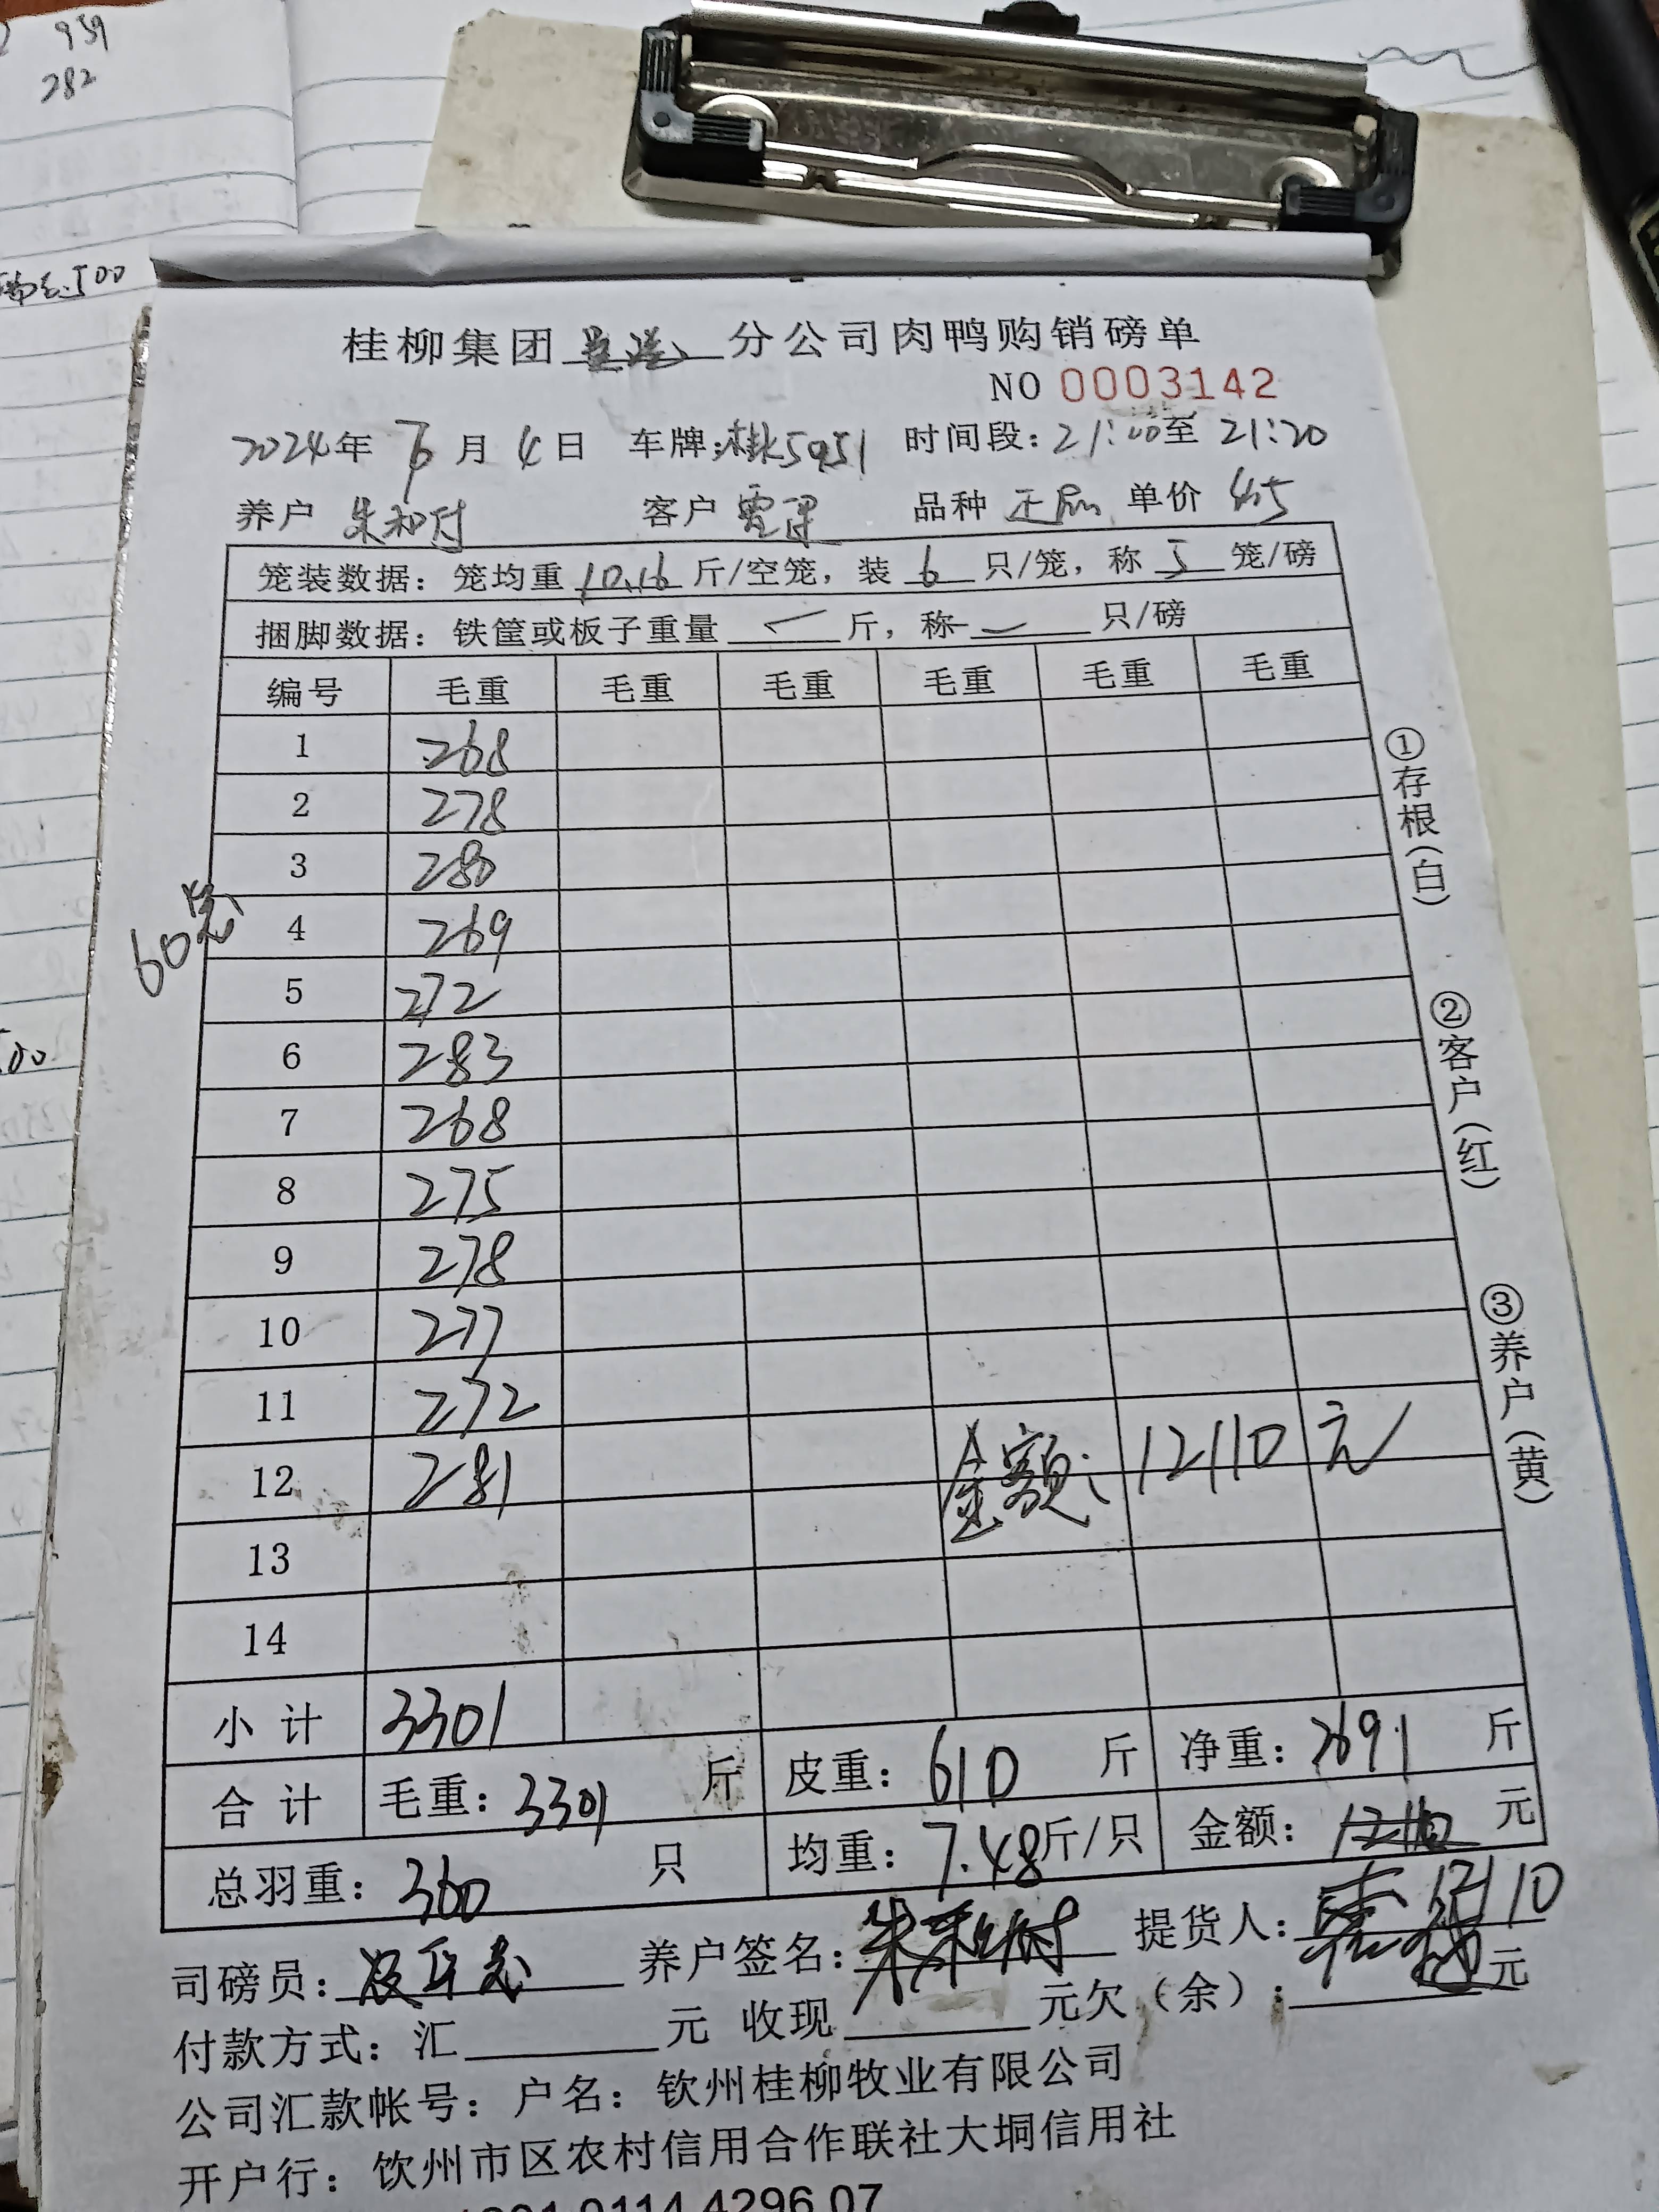 959
282
500
桂柳集团 分公司肉鸭购销磅单
NO 0003142
2024年 6月 4日 车牌:桂K5951 时间段:21:00至 21:20
养户 朱和付 客户 品种 单价 4.5
笼装数据:笼均重 10.16 斤/空笼,装 6 只/笼,称 5 笼/磅
捆脚数据:铁筐或板子重量 斤,称 只/磅
编号 毛重 毛重 毛重 毛重 毛重 毛重
1 268
2 278
3 280
4 269
5 272
6 283
7 268
8 275
9 278
10 277
11 272
12 281 金额:12110元
13
14
60笼
小计 3301
合计 毛重:3301 斤 皮重:610 斤 净重:2691 斤
总羽重:360 只 均重:7.48斤/只 金额:12110 元
12110
司磅员: 养户签名:朱和付 提货人:
付款方式:汇 元 收现 元欠(余): 元
公司汇款帐号:户名:钦州桂柳牧业有限公司
开户行:钦州市区农村信用合作联社大垌信用社
0114 4296 07
①存根(白)
②客户(红)
③养户(黄)